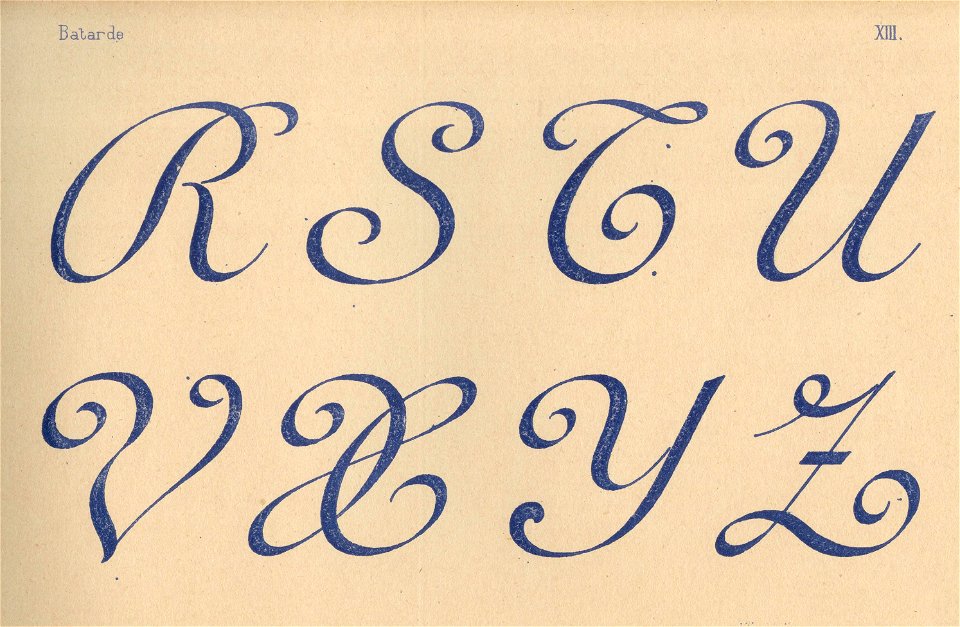 Batarde XIII.
R S T U
V X Y Z